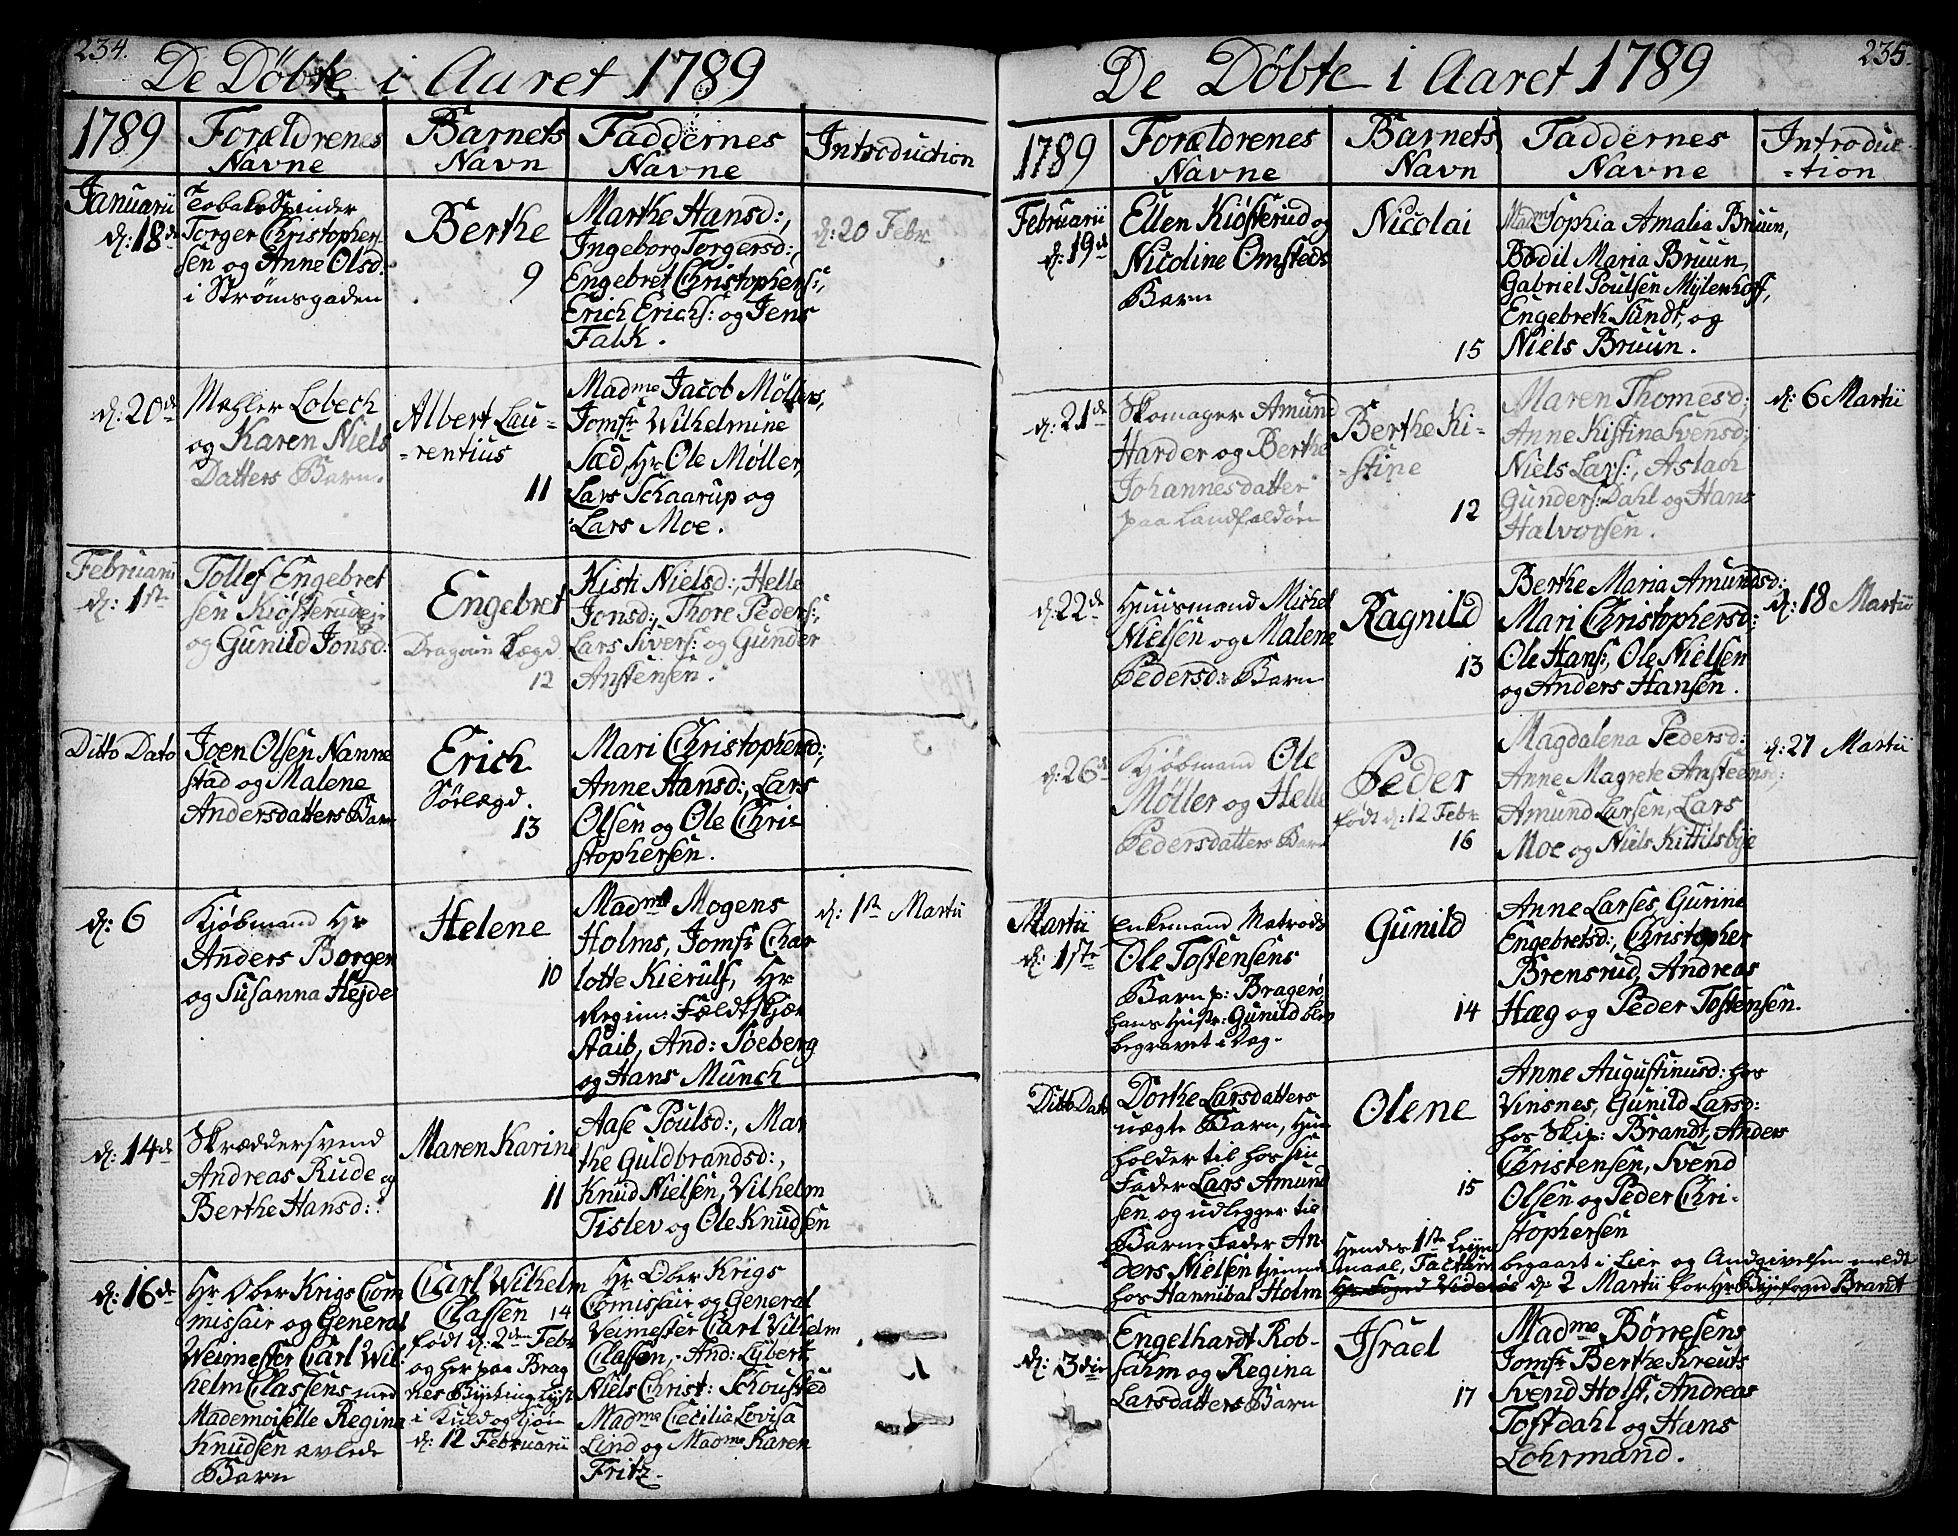 234.
De Döbte i Aaret 1789
1789
Forældrenes
Navne
Barnets
Navn
Faddernes
Navne
Introduction
Januarii
d: 18de
Tobaks Spinder
Torger Christopher-
sen og Anne Olsd:
i Strømsgaden
Berthe
9
Marthe Hansd:,
Ingeborg Torgersd:,
Engebret Christophers:,
Erich Erichs: og Jens
Falk.
d: 20 Febr
d: 20de
Mæhler Lobech
og Karen Niels
Datters Barn.
Albert Lau-
-rentius
11
Madme Jacob Møllers,
Jomfr Wilhelmine
Sæd, Hr Ole Møller,
Lars Schaarup og
Lars Moe.
Februarii
d: 1ste
Tollef Engebret
sen Kiøsterudej:
og Gunild Jonsd:
Engebret
Dragoun Lægd
12
Kisti Nielsd:, Helle
Jonsd:, Thore Peders:,
Lars Sivers: og Gunder
Anstensen.
Ditto Dato
Joen Olsen Nanne
stad og Malene
Andersdatters Barn
Erich
Sölægd.
13
Mari Christophersd:,
Anne Hansd:, Lars
Olsen og Ole Chri-
stophersen.
d: 6
Kjöbmand Hr
Anders Borgen
og Susanna Hejde
Helene
10
Madme Mogens
Holms, Jomfr Char
lotte Kierulf, Hr
Regim: Feldtskjær
Staib, And: Søeberg
og Hans Munch
d: 1ste Martii
d: 14de
Skræddersvend
Andreas Rude og
Berthe Hansd:
Maren Karine
11
Aase Poulsd:, Mar
the Guldbrandsd:,
Knud Nielsen, Vilhelm
Tislev og Ole Knudsen
d: 16de
Hr Ober Krigs Com
missair og General
Veimester Carl Wil-
helm Classens med
Mademoiselle Regina
Knudsen avlede
Barn
Carl Wilhelm
Classen 14
født d: 2den Febr
og her paa Brag
nes
d: 12 Februarii
Hr Ober Krigs
Comissair og General
Veimester Carl Vilhelm
Classen, And: Lybert,
Niels Christ: Schousted
Madme Cecilia Lovisa
Lind og Madme Karen
Fritz.
235.
De Döbte i Aaret 1789
1789
Forældrenes
Navne
Barnets
Navn
Faddernes
Navne
Introduc-
-tion
Februarii
d: 19de
Ellen Kiøsterud og
Nicoline Omsteds
Barn
Nicolai
15
Madme Sophia Amalia Bruun,
Bodil Maria Bruun,
Gabriel Poulsen Mylenhoff,
Engebret Sundt, og
Niels Bruun.
d: 21de
Skomager Amund
Harder og Berthe
Johannesdatter
paa Landfaldöen
Berthe Ki-
-stine
12
Maren Thomesd:,
Anne Kistina Svensd:,
Niels Lars:, Aslach
Gunders: Dahl og Hans
Halvorsen.
d: 6 Martii
d: 22de
Huusmand Michel
Nielsen og Malene
Pedersd: Barn
Ragnild
13
Berthe Maria Amundsd:,
Mari Christophersd:,
Ole Hans:, Ole Nielsen
og Anders Hansen.
d: 18 Martii
d: 26de
Kjöbmand Ole
Möller og Helle
Pedersdatters Barn
Peder
født d: 12 Febr
16
Magdalena Pedersd:
Anne Magrete Ansteensd:,
Amund Larsen, Lars
Moe og Niels Kittilsbye
d: 27 Martii
Martii
d: 1ste
Enkemand Matrods
Ole Tostensens
Barn p: Bragerö
hans Hustr: Gunild blev
begravet i Dag.
Gunild
14
Anne Larses, Gurine
Engebretsd:, Christopher
Brensrud, Andreas
Hæg og Peder Tostensen.
Ditto Dato
Dorthe Larsdatters
uægte Barn, Hun
holder til hos sin
Fader Lars Amund
sen og udlegger til
Barne Fader An-
ders Nielsen tjenende
hos Hannibal Holm
Olene
15
Hendes 1ste Leyer
maal, Factum
begaaet i Lier og Andgivelsen meldt
d: 2 Martii for Hr Byefoged Brandt
Anne Augustinusd: hos
Vinsnes, Gunild Larsd:
hos Skip: Brandt, Anders
Christensen, Svend
Olsen og Peder Chri-
stophersen
d: 3die
Engelhardt Rob-
sahm og Regina
Larsdatters Barn
Israel
17
Madme Börresens
Jomfr Berthe Kreuts
Svend Holst, Andreas
Toftdahl og Hans
Lohrmand.